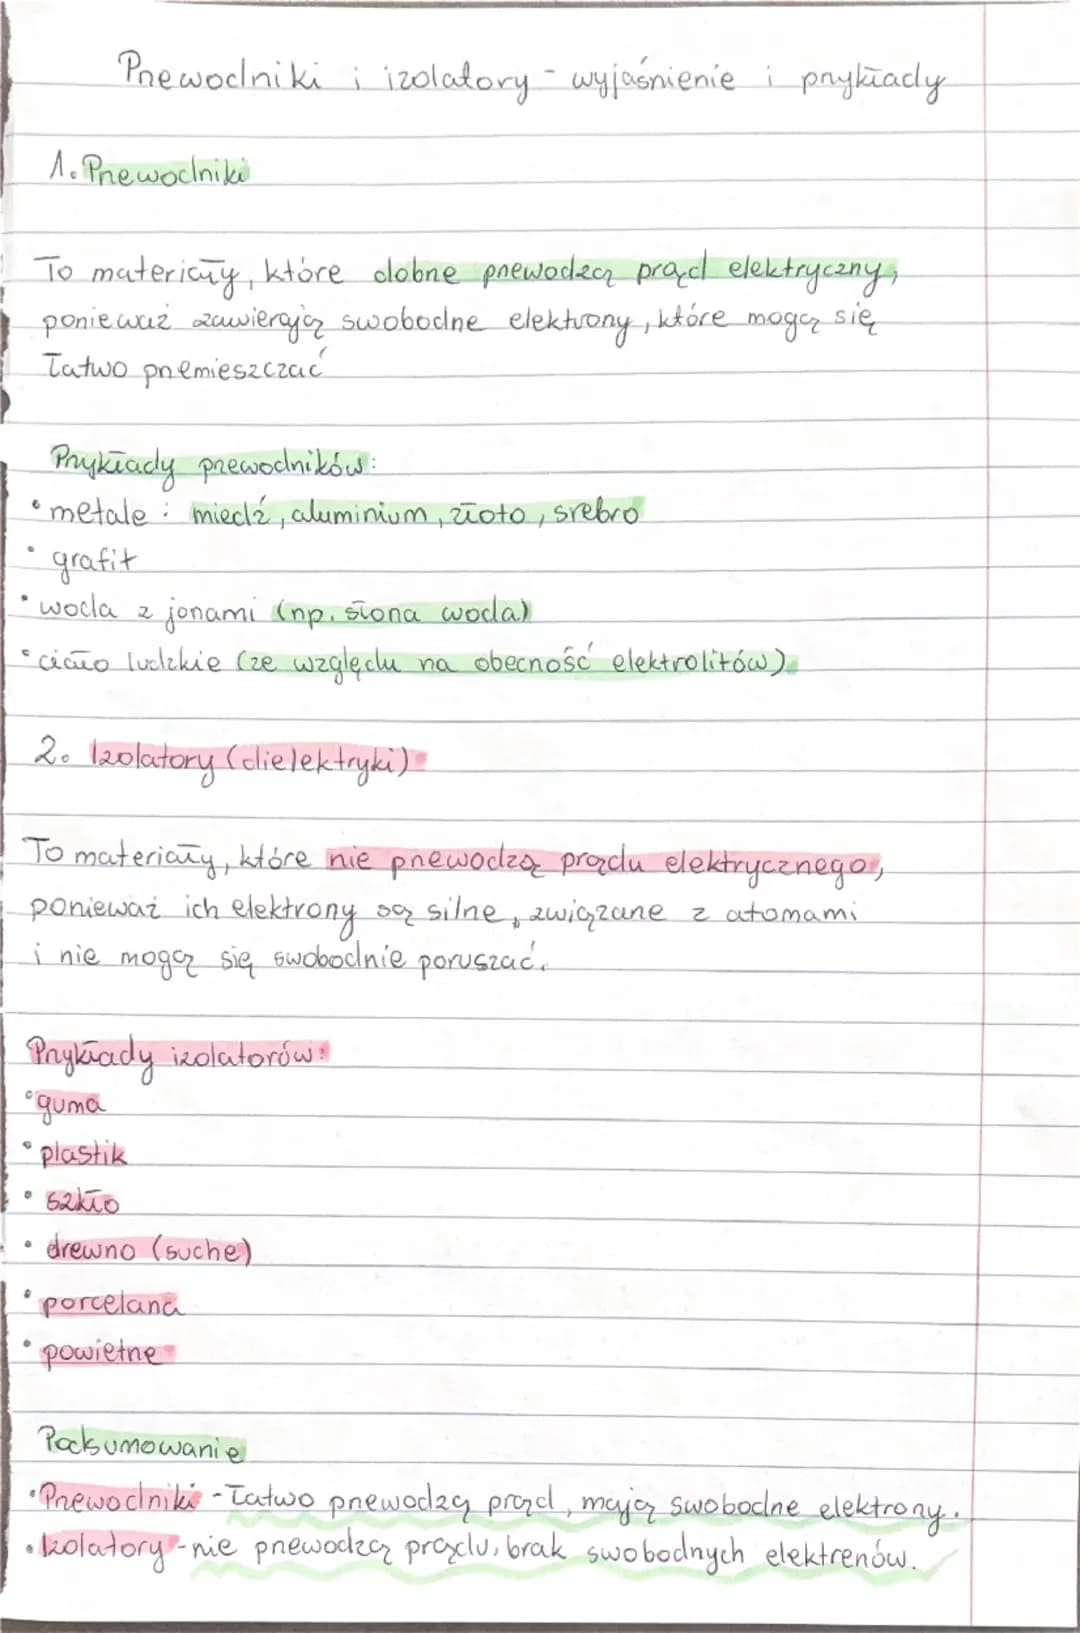 Przewodniki i izolatory - wyjaśnienie i przykłady
1. Przewodniki
To materiały, które dobrze przewodzą prąd elektryczny,
ponieważ zawierają swobodne elektrony, które mogą się
łatwo przemieszczać
Przykłady przewodników:
• metale: miedź, aluminium, złoto, srebro
• grafit
• woda z jonami (np. słona woda)
• ciało ludzkie (ze względu na obecność elektrolitów).
2. Izolatory (dielektryki)
To materiały, które nie przewodzą prądu elektrycznego,
ponieważ ich elektrony są silne, związane z atomami
i nie mogą się swobodnie poruszać.
Przykłady izolatorów:
• guma
• plastik
• szkło
• drewno (suche)
• porcelana
• powietrze
Podsumowanie
• Przewodniki - łatwo przewodzą prąd, mają swobodne elektrony.
• Izolatory - nie przewodzą prądu, brak swobodnych elektrenów.